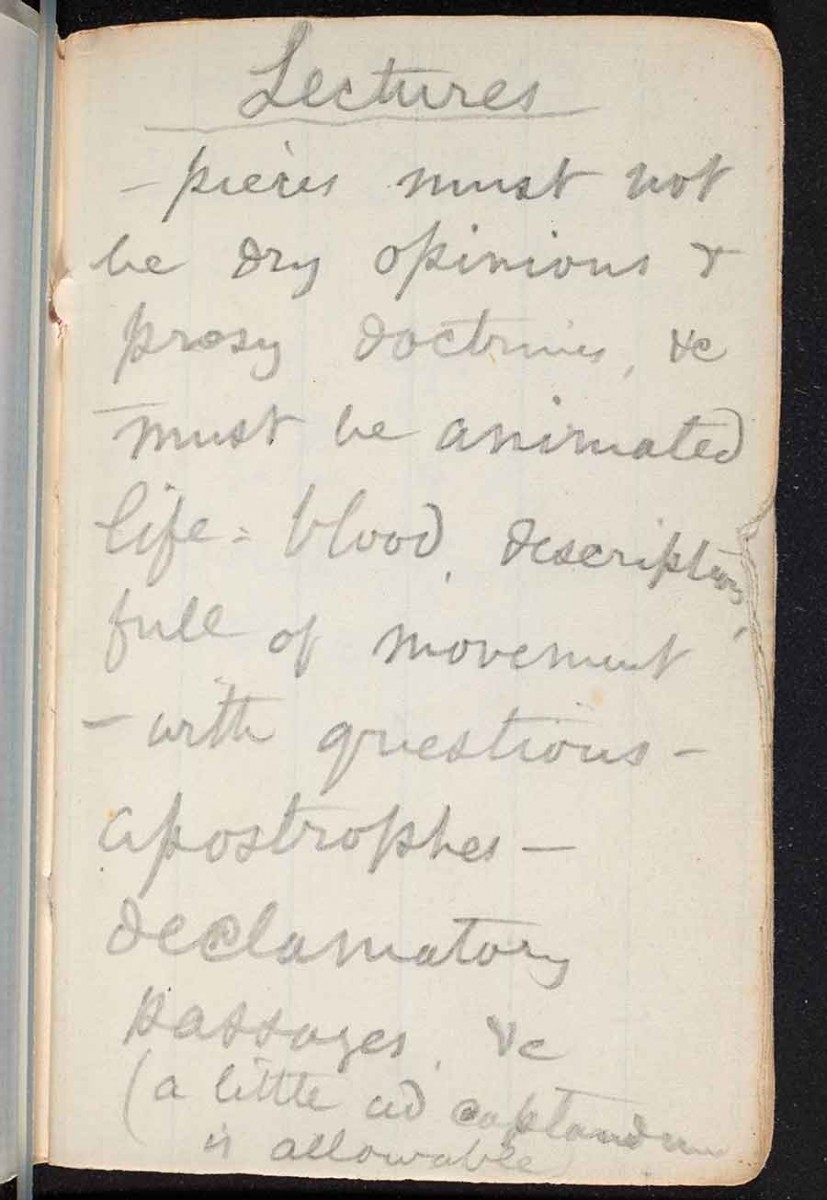 Lectures
– pieces must not
be dry opinions &
prosy doctrines, &c
– must be animated
life-blood, descriptions,
full of movement
– with questions –
apostrophes –
declamatory
passages, &c
(a little ad captandum
is allowable)